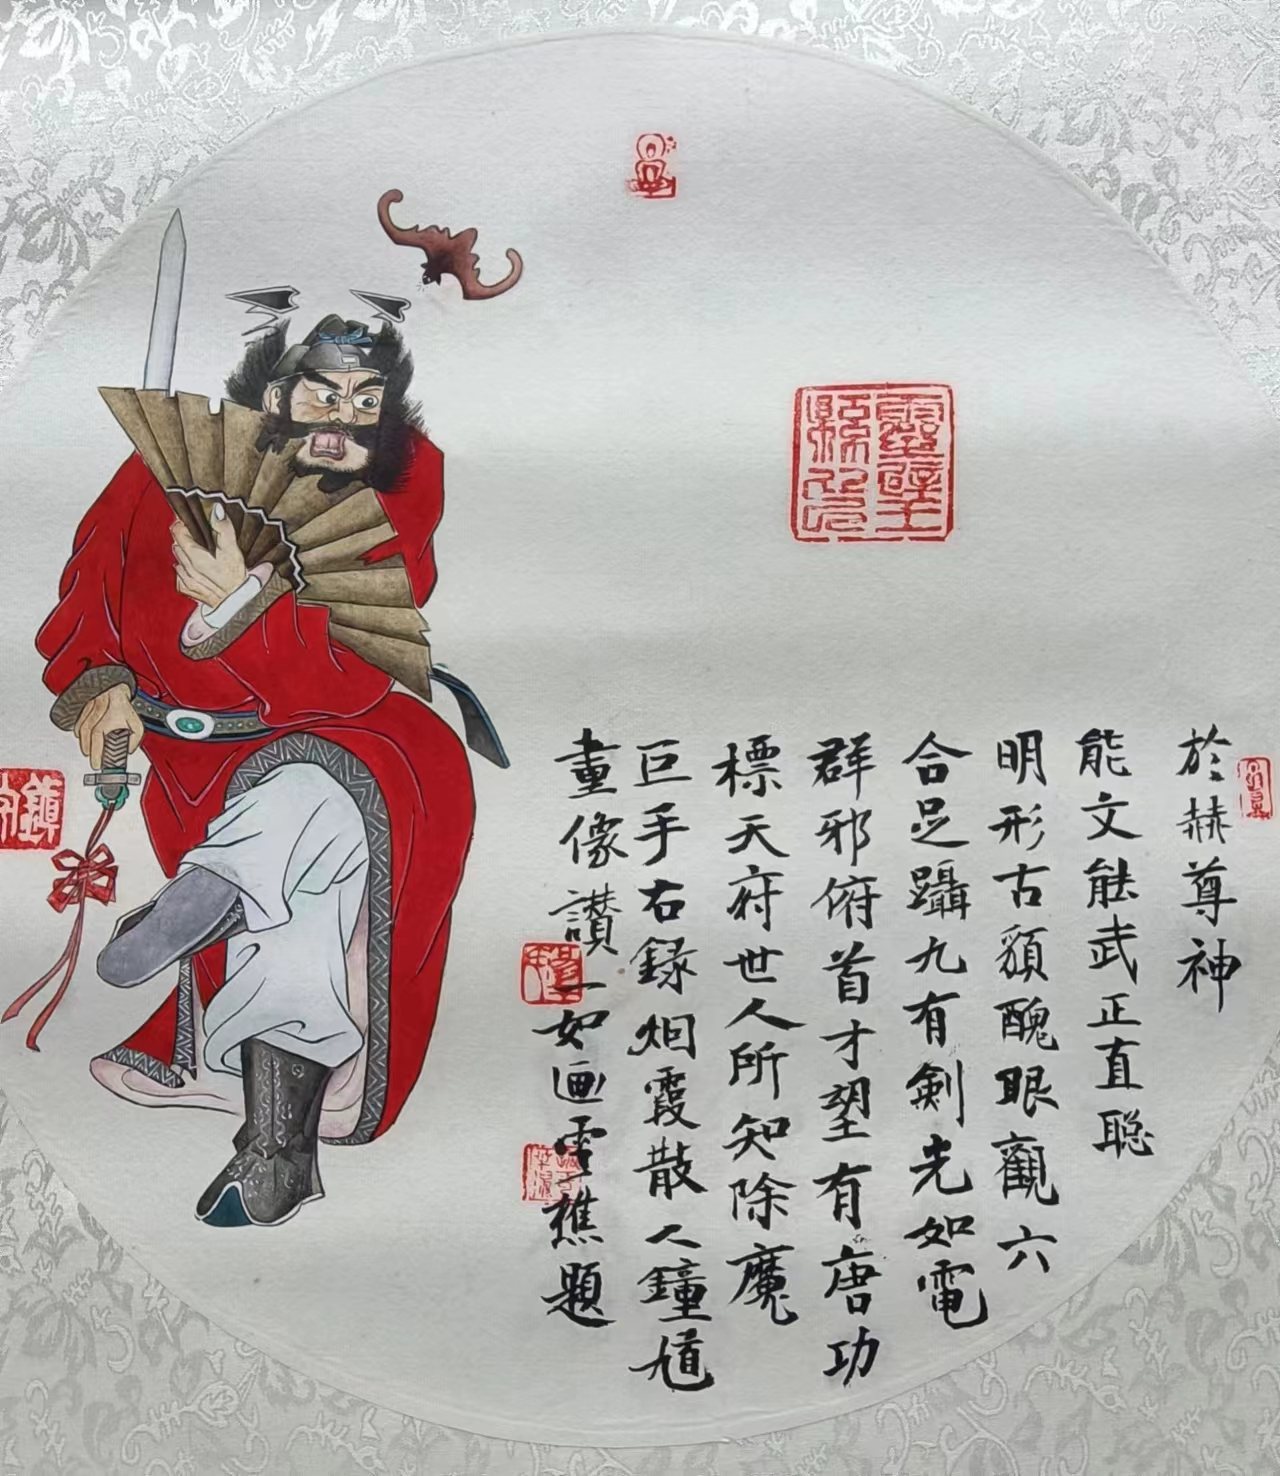 於赫尊神
能文能武正直聡
明形古額醜眼觀六
合足躡九有劍光如電
群邪俯首才望有唐功
標天府世人所知除魔
巨手右録烟霞散人鐘馗
畫像讚一如画雪樵題
靈璧縣印